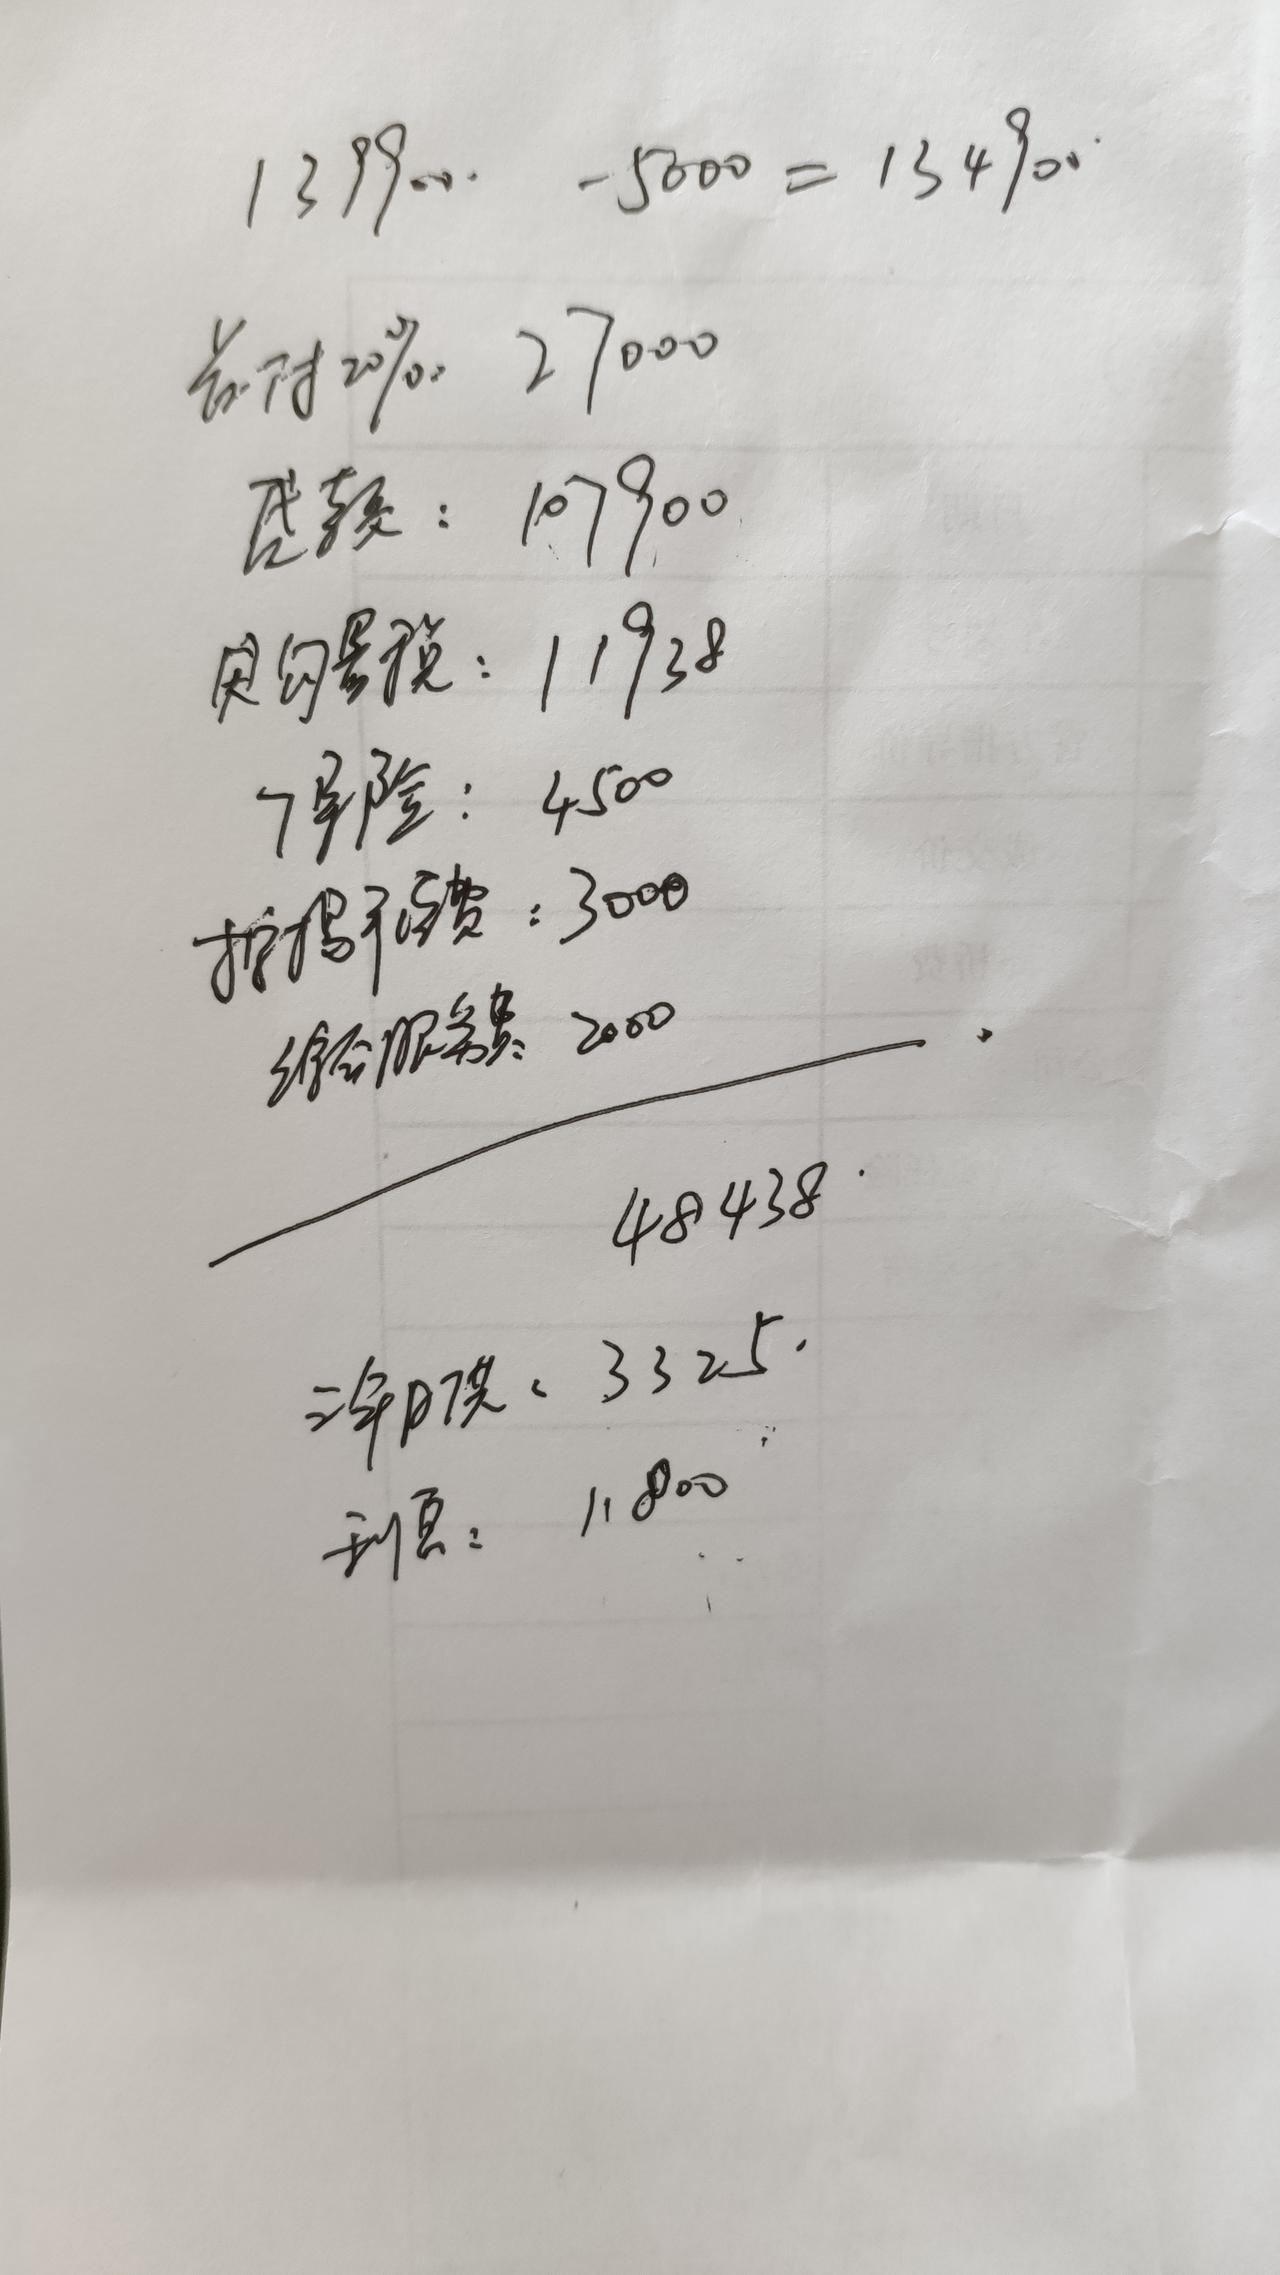 139900 -5000 = 134900
首付20%: 27000
贷款: 107900
购置税: 11938
保险: 4500
按揭手续费: 3000
综合服务费: 2000
48438
三年月供: 3325
利息: 11800